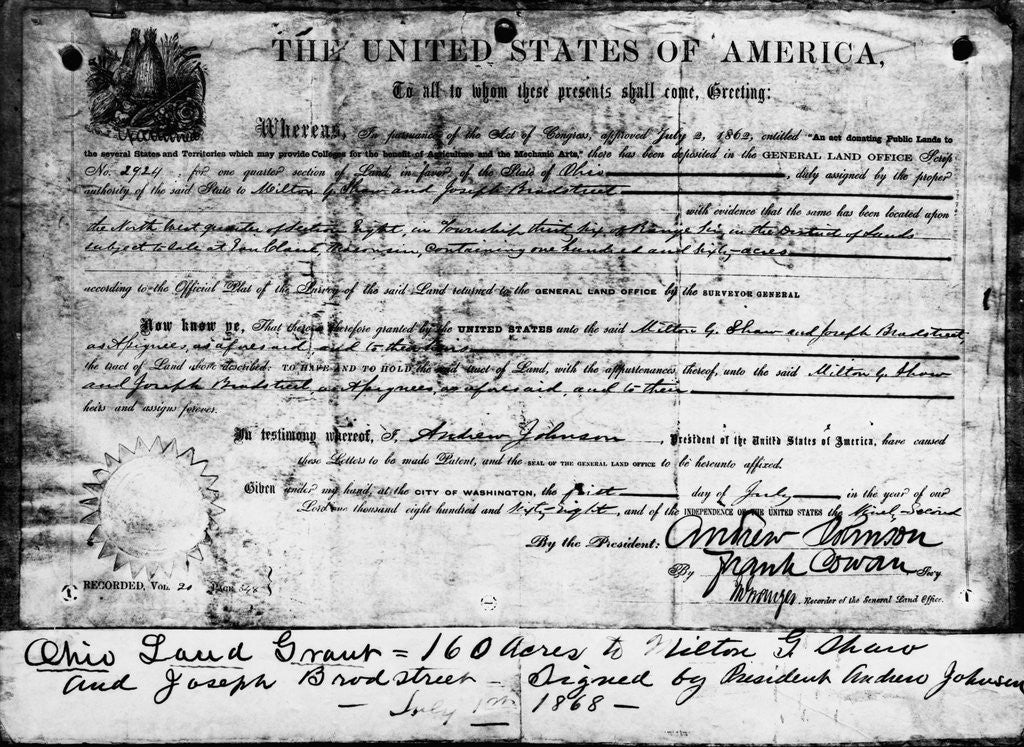 THE UNITED STATES OF AMERICA,
To all to whom these presents shall come, Greeting:
Whereas, In pursuance of the Act of Congress, approved July 2, 1862, entitled "An act donating Public Lands to
the several States and Territories which may provide Colleges for the benefit of Agriculture and the Mechanic Arts," there has been deposited in the GENERAL LAND OFFICE Scrip
No. 2924, for one quarter section of Land, in favor of the State of Ohio, duly assigned by the proper
authority of the said State to Milton G. Shaw and Joseph Bradstreet
with evidence that the same has been located upon
the North West quarter of Section Eight, in Township thirty six of Range Six in the District of Lands
subject to sale at Eau Claire, Wisconsin, containing one hundred and sixty acres
according to the Official Plat of the Survey of the said Land returned to the GENERAL LAND OFFICE by the SURVEYOR GENERAL
Now know ye, That there is therefore granted by the UNITED STATES unto the said Milton G. Shaw and Joseph Bradstreet,
as Assignees, as aforesaid, and to their heirs
the tract of Land above described: TO HAVE AND TO HOLD the said tract of Land, with the appurtenances thereof, unto the said Milton G. Shaw
and Joseph Bradstreet, as Assignees, as aforesaid, and to their
heirs and assigns forever.
In testimony whereof, I, Andrew Johnson, President of the United States of America, have caused
these Letters to be made Patent, and the SEAL OF THE GENERAL LAND OFFICE to be hereunto affixed.
Given under my hand, at the CITY OF WASHINGTON, the first day of July in the year of our
Lord one thousand eight hundred and Sixty-Eight, and of the INDEPENDENCE OF THE UNITED STATES the Ninety-Second
By the President: Andrew Johnson
By Frank Cowan, Secy
Recorder of the General Land Office.
RECORDED, VOL. 20 PAGE
Ohio Land Grant = 160 Acres to Milton G Shaw
and Joseph Brodstreet - Signed by President Andrew Johnson
- July 1st 1868 -